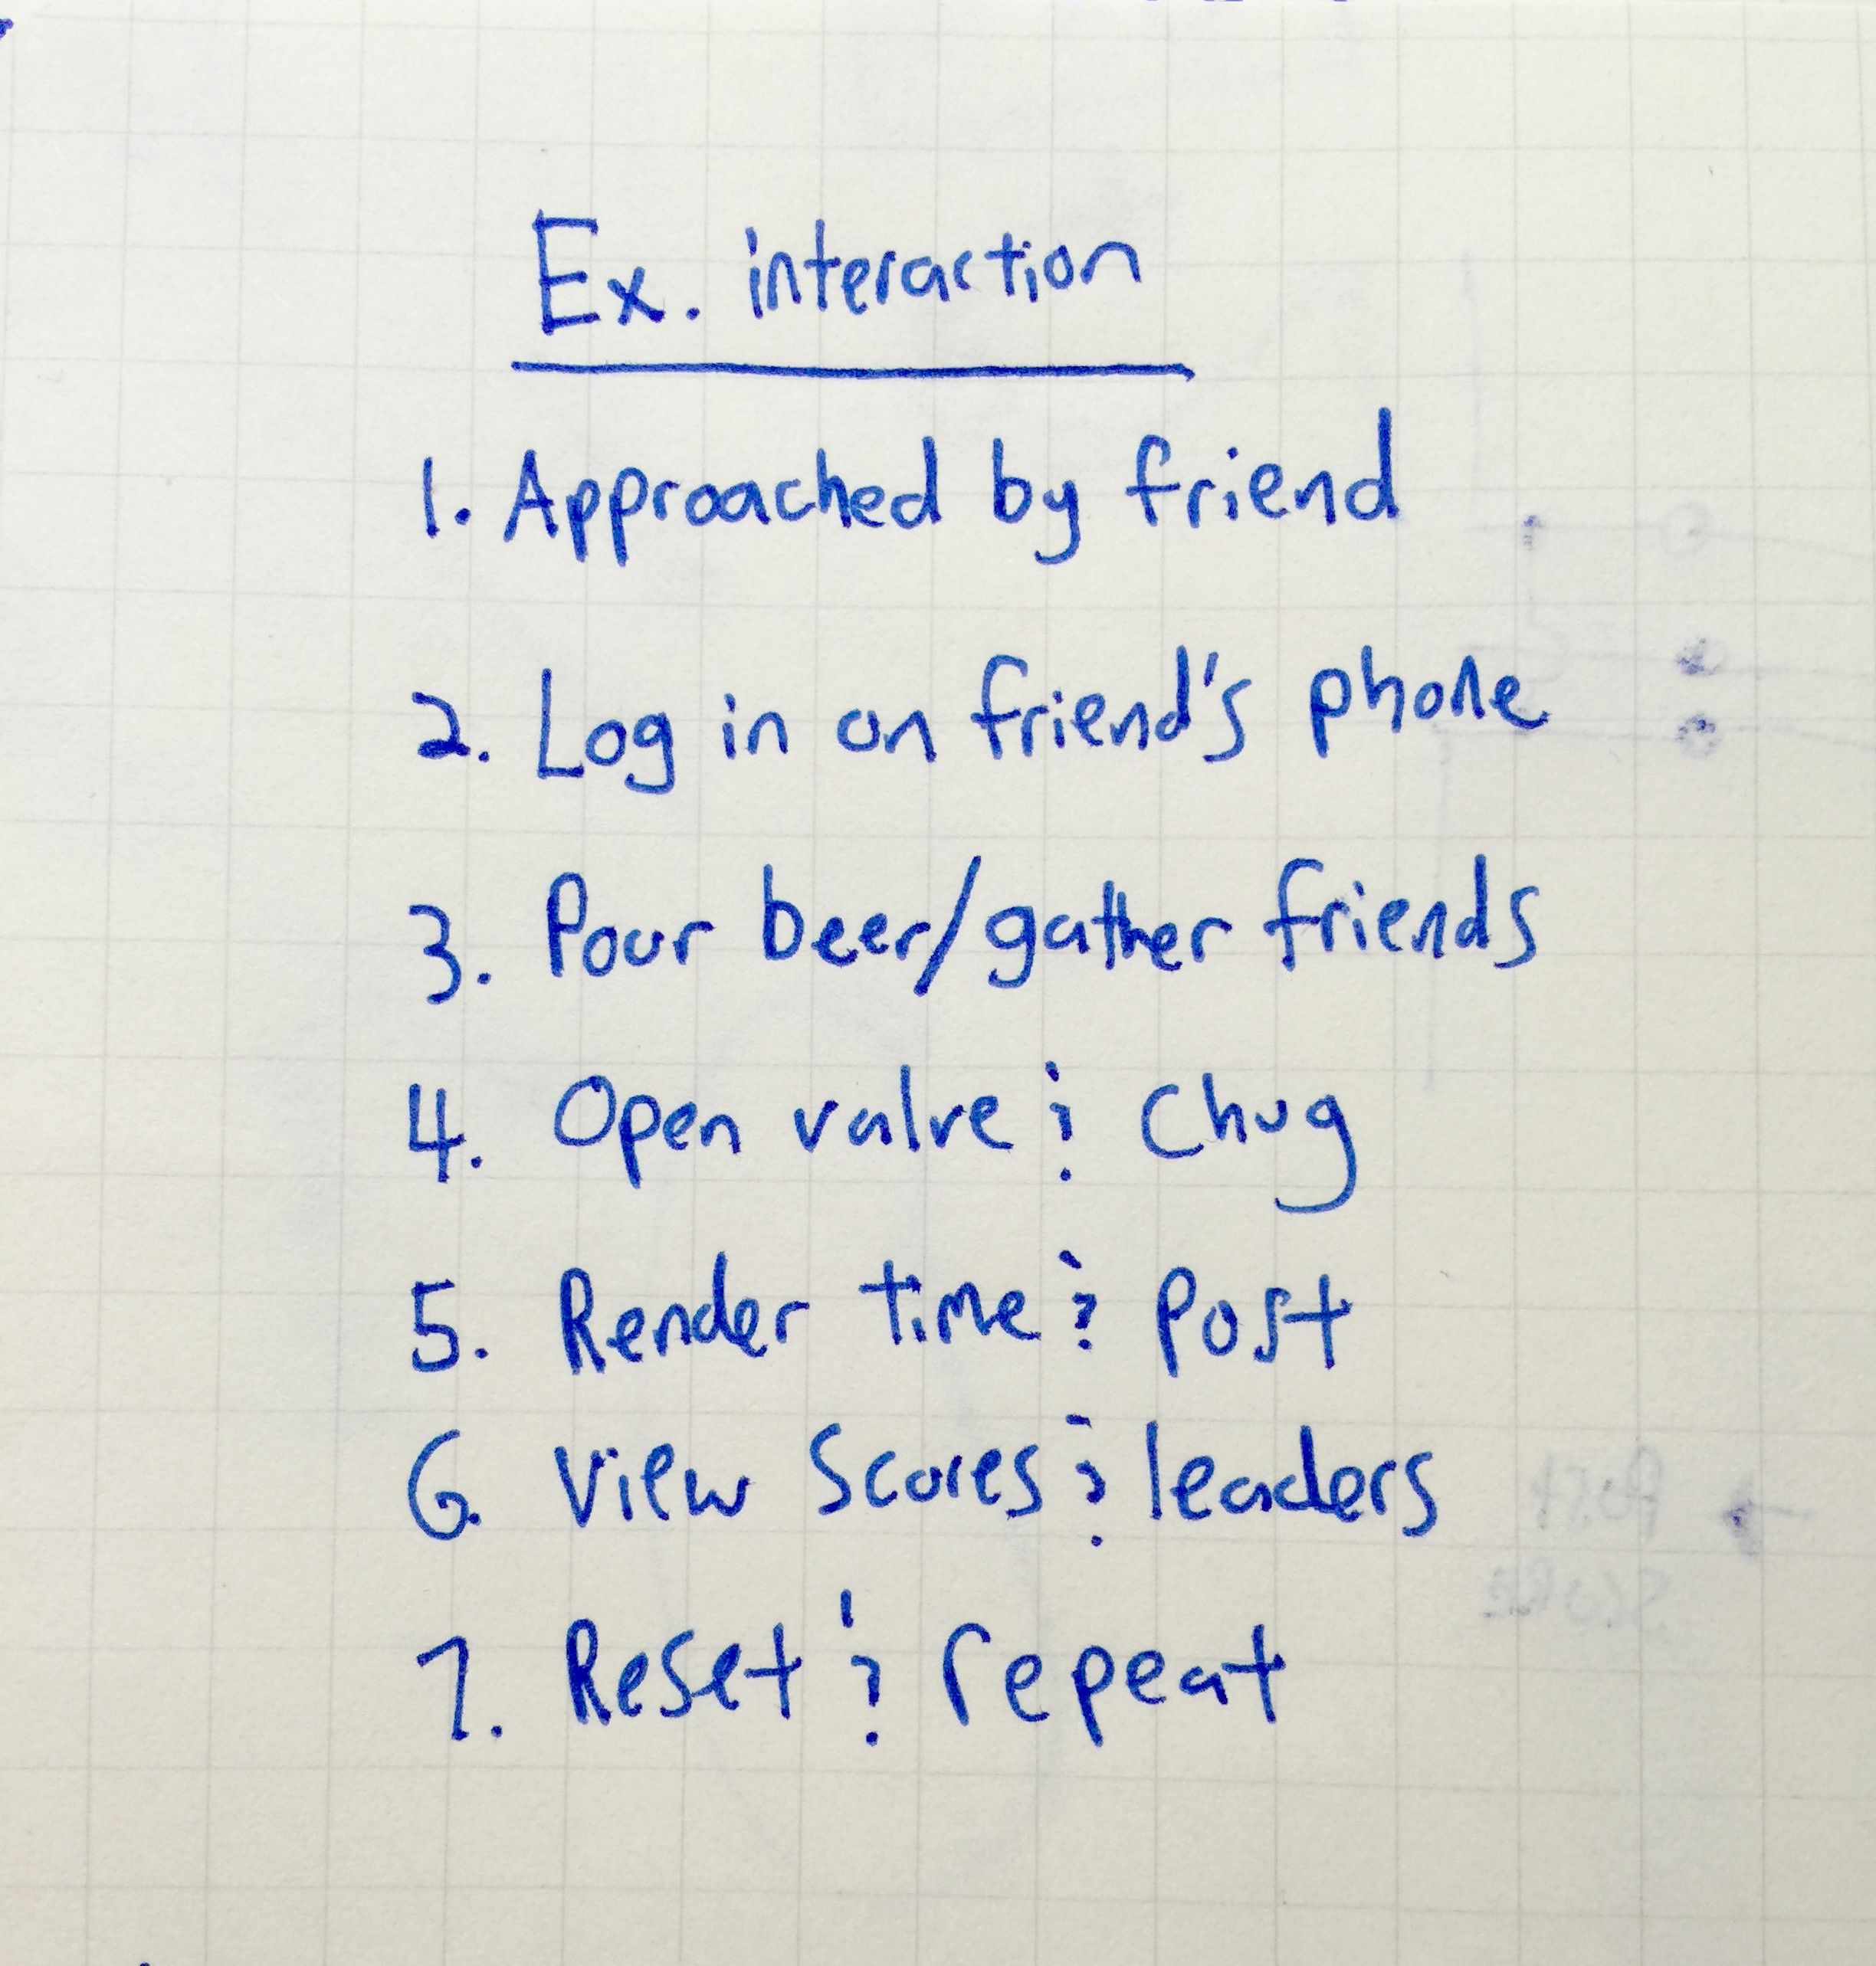 Ex. interaction
1. Approached by friend
2. Log in on friend's phone
3. Pour beer/gather friends
4. Open valve & Chug
5. Render time & Post
6. View Scores & leaders
7. Reset & repeat